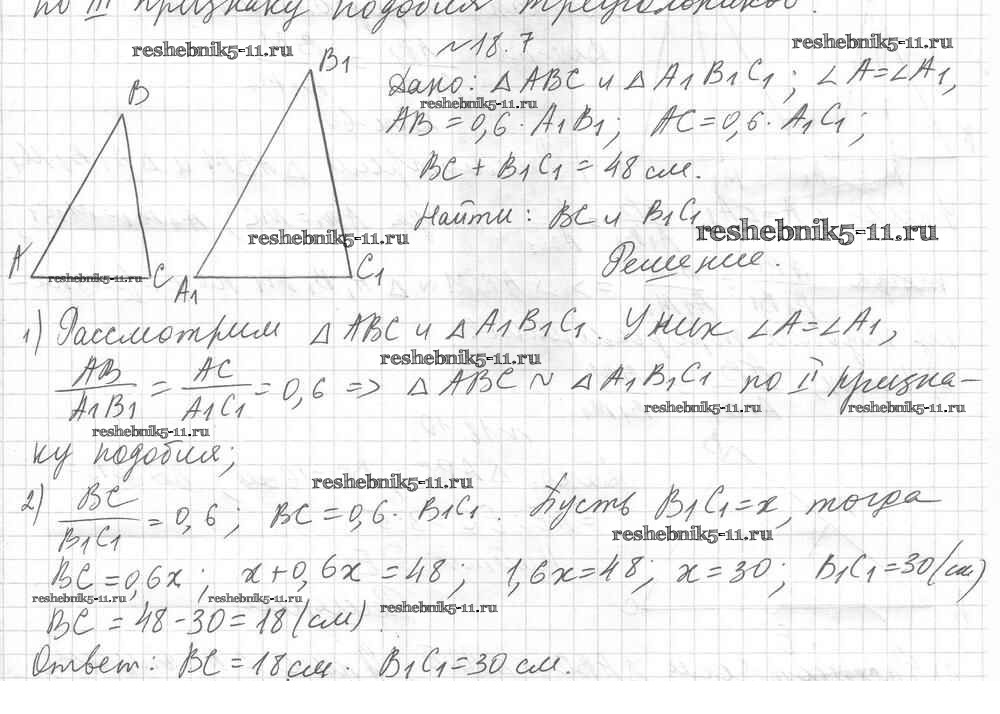 по III признаку подобия треугольников.
reshebnik5-11.ru
№18.7
reshebnik5-11.ru
B
B1
Дано: △ABC и △A1B1C1; ∠A=∠A1,
reshebnik5-11.ru
AB=0,6·A1B1; AC=0,6·A1C1;
BC+B1C1=48 см.
Найти: BC и B1C1
reshebnik5-11.ru
reshebnik5-11.ru
Решение.
A
reshebnik5-11.ru
C
A1
C1
1) Рассмотрим △ABC и △A1B1C1. У них ∠A=∠A1,
reshebnik5-11.ru
AB/A1B1 = AC/A1C1 = 0,6 => △ABC ~ △A1B1C1 по II призна-
reshebnik5-11.ru
reshebnik5-11.ru
reshebnik5-11.ru
ку подобия;
reshebnik5-11.ru
2) BC/B1C1 = 0,6; BC=0,6·B1C1. Пусть B1C1=x, тогда
reshebnik5-11.ru
BC=0,6x; x+0,6x=48; 1,6x=48; x=30; B1C1=30(см)
reshebnik5-11.ru
reshebnik5-11.ru
reshebnik5-11.ru
BC=48-30=18(см).
Ответ: BC=18см. B1C1=30 см.